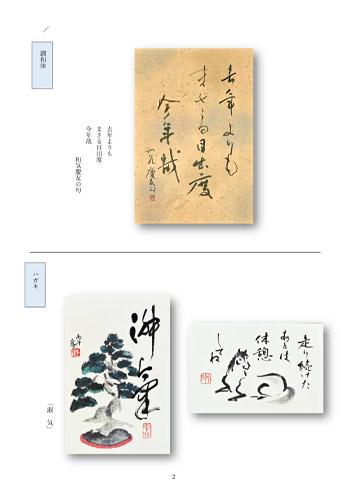 調和体
去年よりも
まさる目出度
今年哉
和気慶友の句
去年よりも
まさる目出度
今年哉
ハガキ
走り続けた
あとは
休憩
してね
淑気
丙午
「淑 気」
2